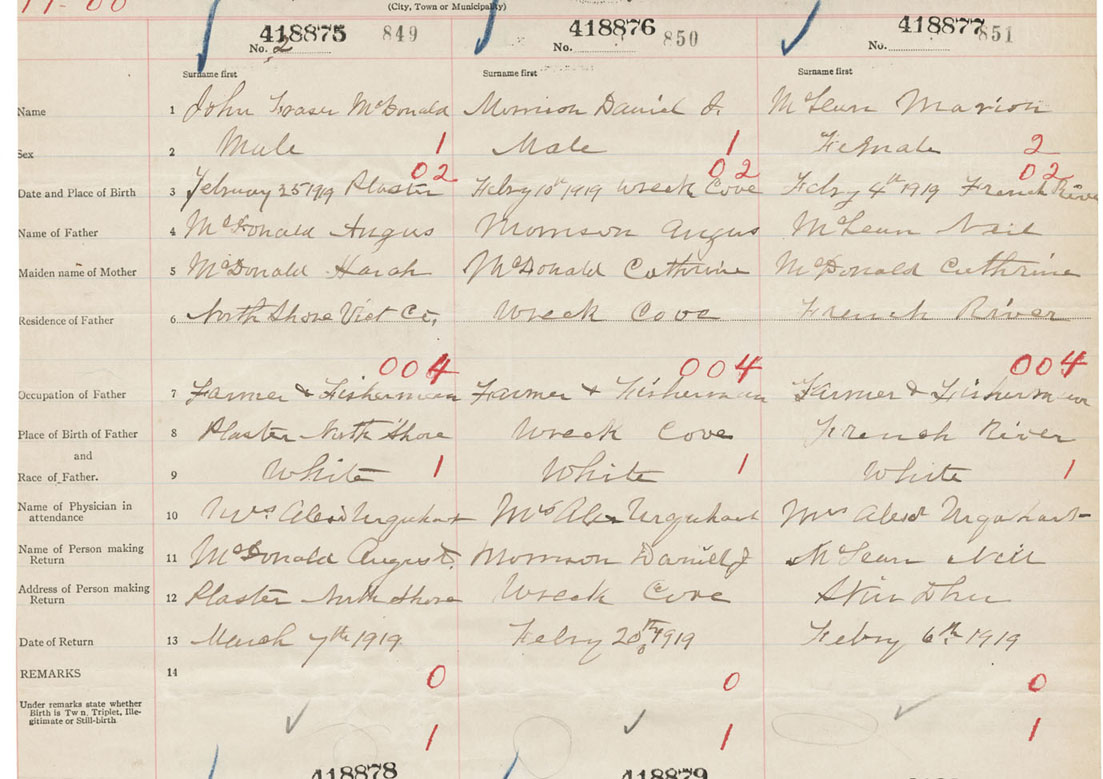 (City, Town or Municipality)
418875 849 418876 850 418877 851
No. 2 No. No.
Surname first Surname first Surname first
Name 1 John Fraser McDonald Morrison Daniel J. McLean Marion
Sex 2 Male 1 Male 1 Female 2
02 02 02
Date and Place of Birth 3 February 25 1919 Plaster Febry 10th 1919 Wreck Cove Febry 4th 1919 French River
Name of Father 4 McDonald Angus Morrison Angus McLean Neil
Maiden name of Mother 5 McDonald McDonald Cathrine McDonald Cathrine
Residence of Father 6 North Shore Vict Co, Wreck Cove French River
004 004 004
Occupation of Father 7 Farmer & Fisherman Farmer & Fisherman Farmer & Fisherman
Place of Birth of Father 8 Plaster North Shore Wreck Cove French River
and
Race of Father. 9 White 1 White 1 White 1
Name of Physician in
attendance 10 Mrs Alexd Urquhart Mrs Alex Urquhart Mrs Alexd Urquhart
Name of Person making
Return 11 McDonald Morrison Daniel J McLean Neil
Address of Person making
Return 12 Plaster North Shore Wreck Cove
Date of Return 13 March 7th 1919 Febry 20th 1919 Febry 6th 1919
REMARKS 14 0 0 0
Under remarks state whether
Birth is Twn, Triplet, Ille-
gitimate or Still-birth 1 1 1
418878 418879